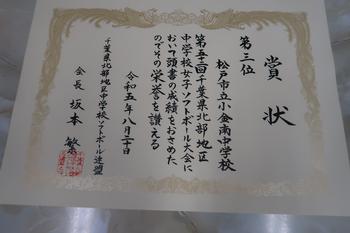 賞状
第三位
松戸市立小金南中学校
第五十一回千葉県北部地区
中学校女子ソフトボール大会に
おいて頭書の成績をおさめた
のでその栄誉を讃える
令和五年八月二十日
千葉県北部地区中学校ソフトボール連盟
会長 坂本 繁